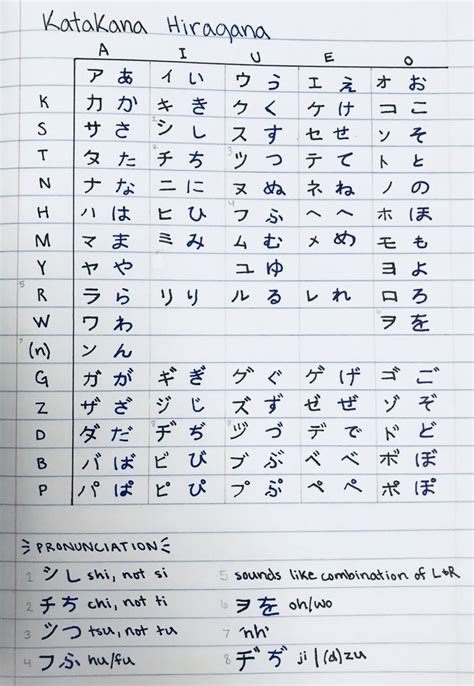 Katakana Hiragana
A I U E O
ア あ イ い ウ う エ え オ お
K カ か キ き ク く ケ け コ こ
S サ さ 1 シ し ス す セ せ ソ そ
T タ た 2 チ ち 3 ツ つ テ て ト と
N ナ な ニ に ヌ ぬ ネ ね ノ の
H ハ は ヒ ひ 4 フ ふ ヘ へ ホ ほ
M マ ま ミ み ム む メ め モ も
Y ヤ や ユ ゆ ヨ よ
5 R ラ ら リ り ル る レ れ ロ ろ
W ワ わ 6 ヲ を
7 (n) ン ん
G ガ が ギ ぎ グ ぐ ゲ げ ゴ ご
Z ザ ざ ジ じ ズ ず ゼ ぜ ゾ ぞ
D ダ だ 8 ヂ ぢ 8 ヅ づ デ で ド ど
B バ ば ビ び ブ ぶ ベ べ ボ ぼ
P パ ぱ ピ ぴ プ ぷ ペ ぺ ポ ぽ
PRONUNCIATION
1 シ し shi, not si
2 チ ち chi, not ti
3 ツ つ tsu, not tu
4 フ ふ hu/fu
5 sounds like combination of L&R
6 ヲ を oh/wo
7 "nh"
8 ヂ ぢ ji | (d)zu